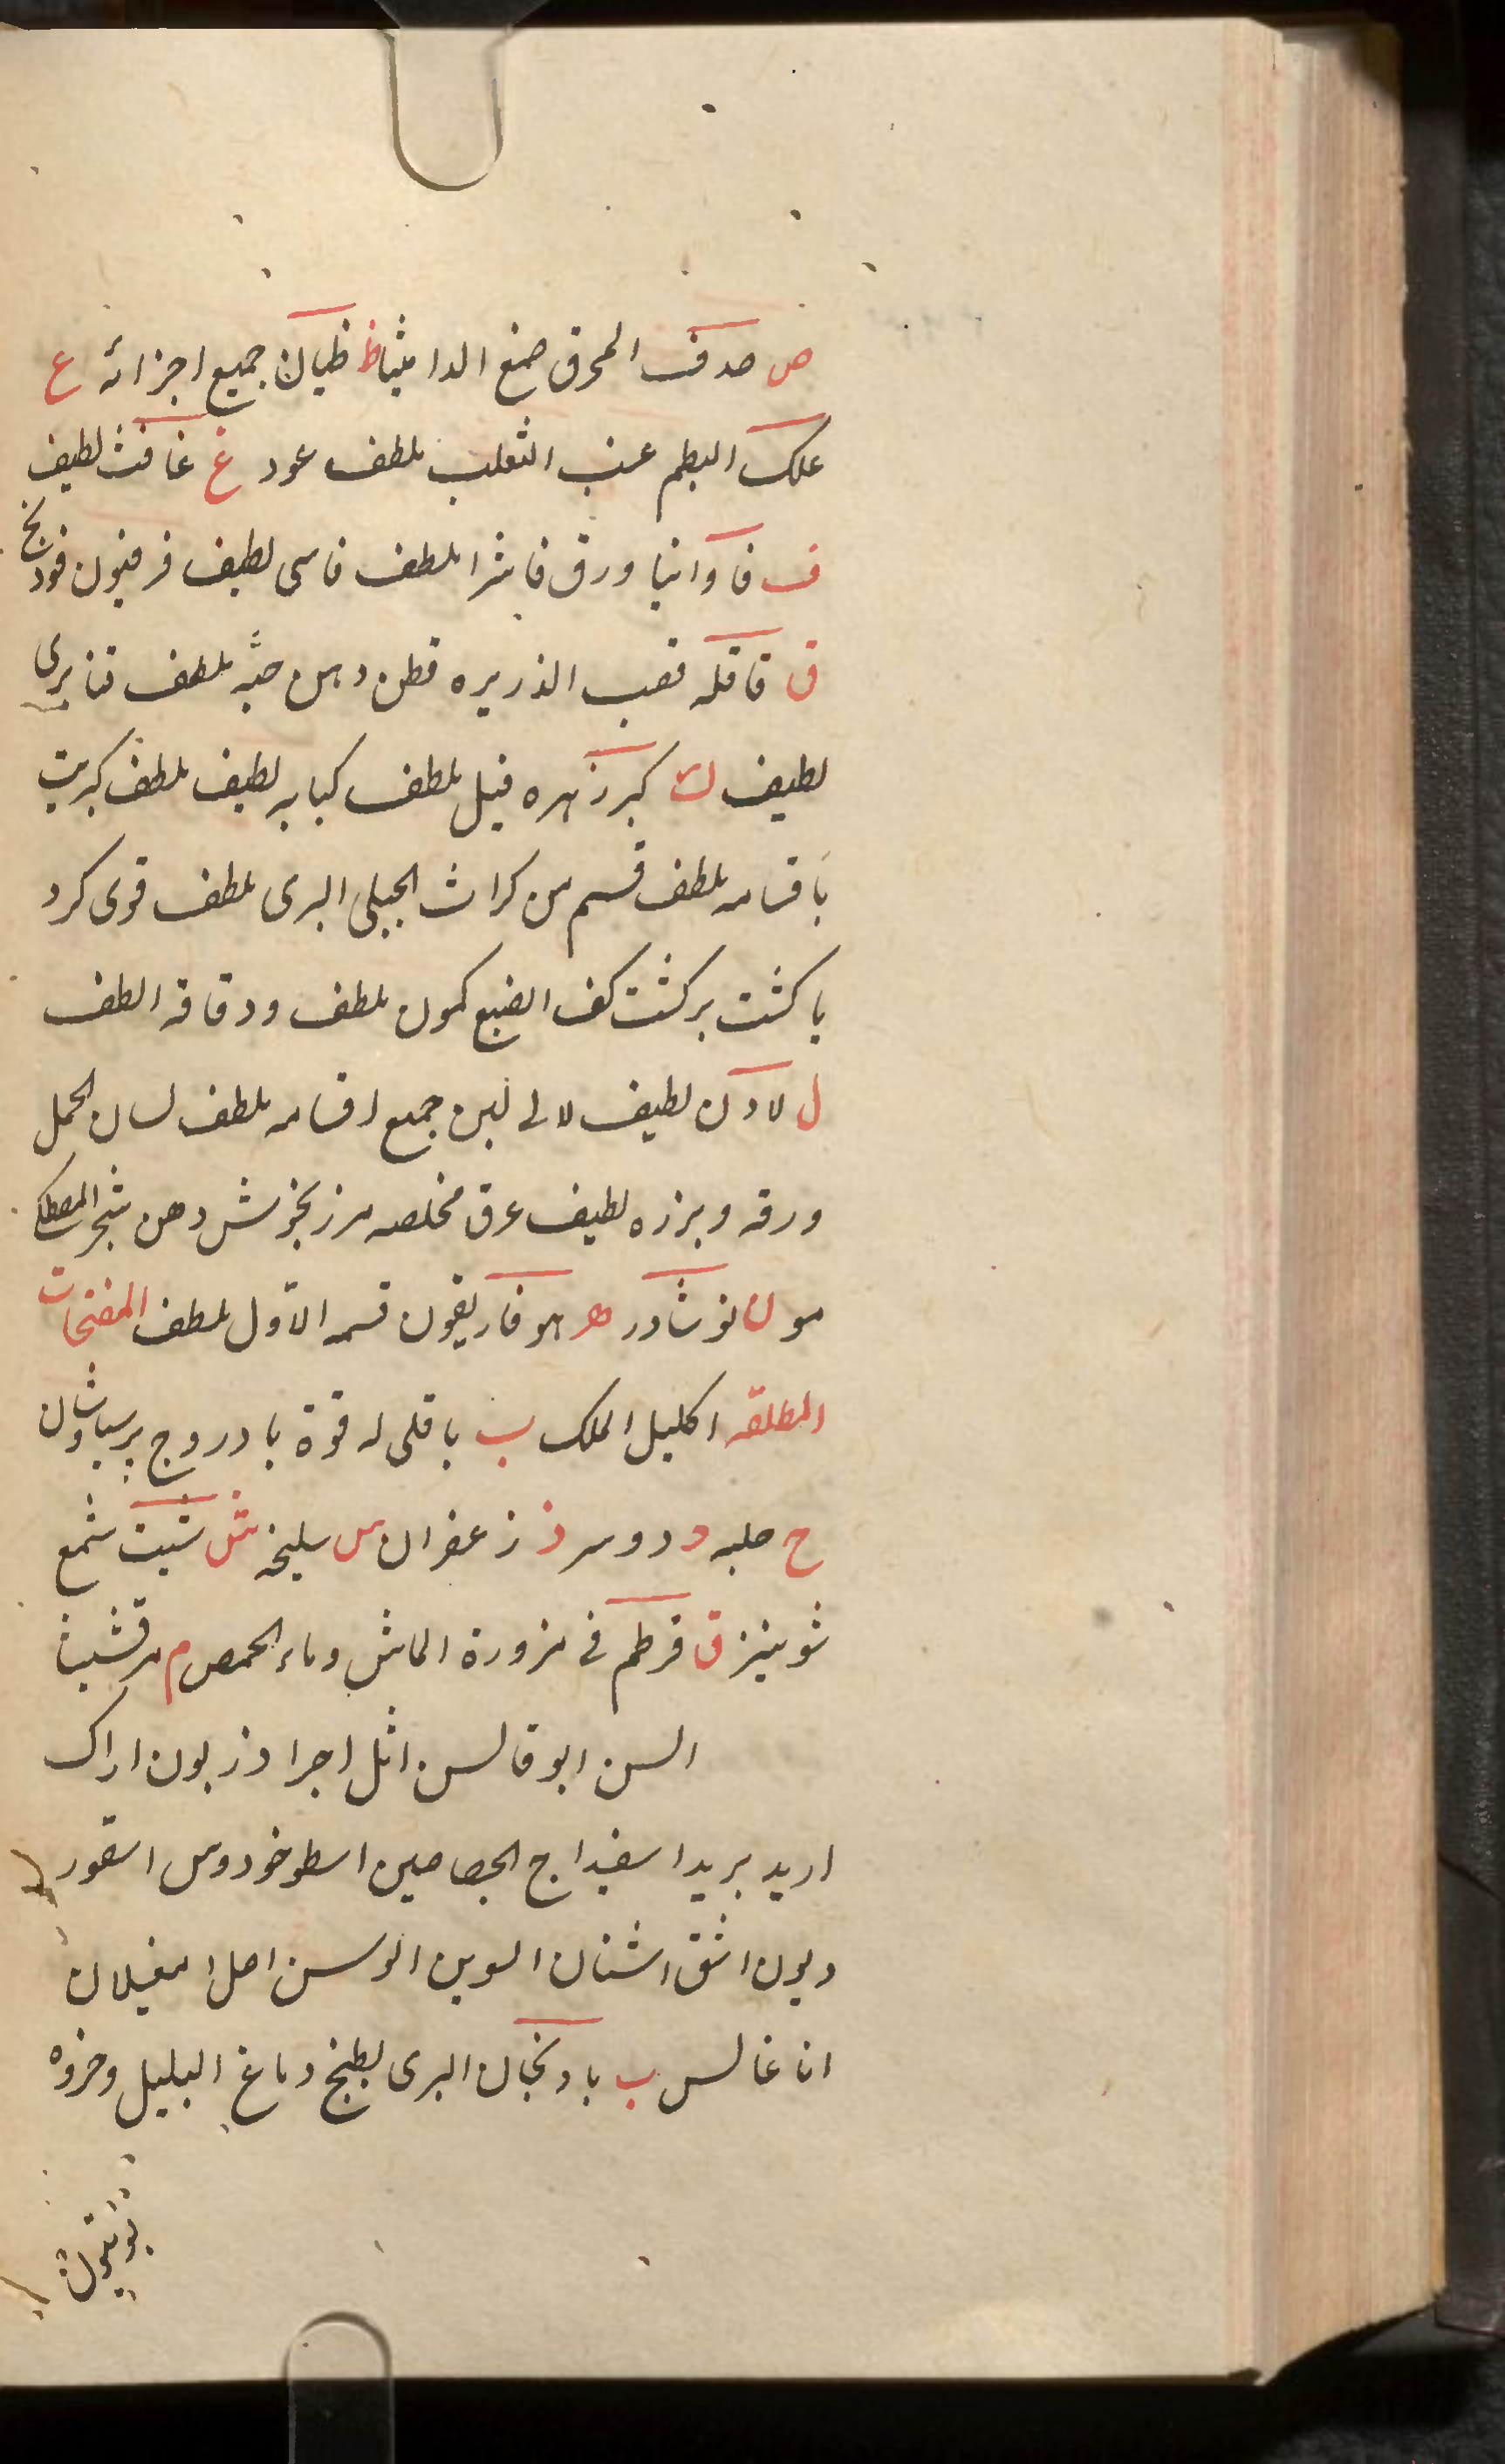 ص صدف المحرق صمغ الداميثا ظ ظیان جمیع اجزائه ع
علک البطم عنب الثعلب ملطف عود غ غافث لطیف
ف فاوانیا ورق فاشرا ملطف فاسی لطیف فرفیون فودنج
ق قاقله قصب الذریره قطن دهن حبّه ملطف قنابری
لطیف ک کبر زهره فیل ملطف کبابه لطیف ملطف کبریت
باقسامه ملطف قسم من کراث الجبلی البری ملطف قوی کرد
یا کشت برکشت کف الضبع کمون ملطف ودقاقه الطف
ل لادن لطیف لالی لبن جمیع اقسامه ملطف لسان الحمل
ورقه وبزره لطیف عرق مخلصه مرزنجوش دهن شجر المصطکا
مو ن نوشادر ه هوفاریقون قسمه الاول ملطف المفتحات
المطلقه اکلیل الملک ب باقلی له قوة بادروج پرسیاوشان
ح حلبه د دوسر ز زعفران س سلیخه ش شبت شمع
شونیز ق قرطم فی مزورة الماش وماء الحمص م مرقشیثا
السن ابوقالس اثل اجرا دزبون اراک
ارید برید اسفیداج الجصاصین اسطوخودوس اسقور
دیون اشق اشنان السوین الوسن اصل امغیلان
اناغالس ب بادنجان البری بطیخ دماغ البلیل وخروه